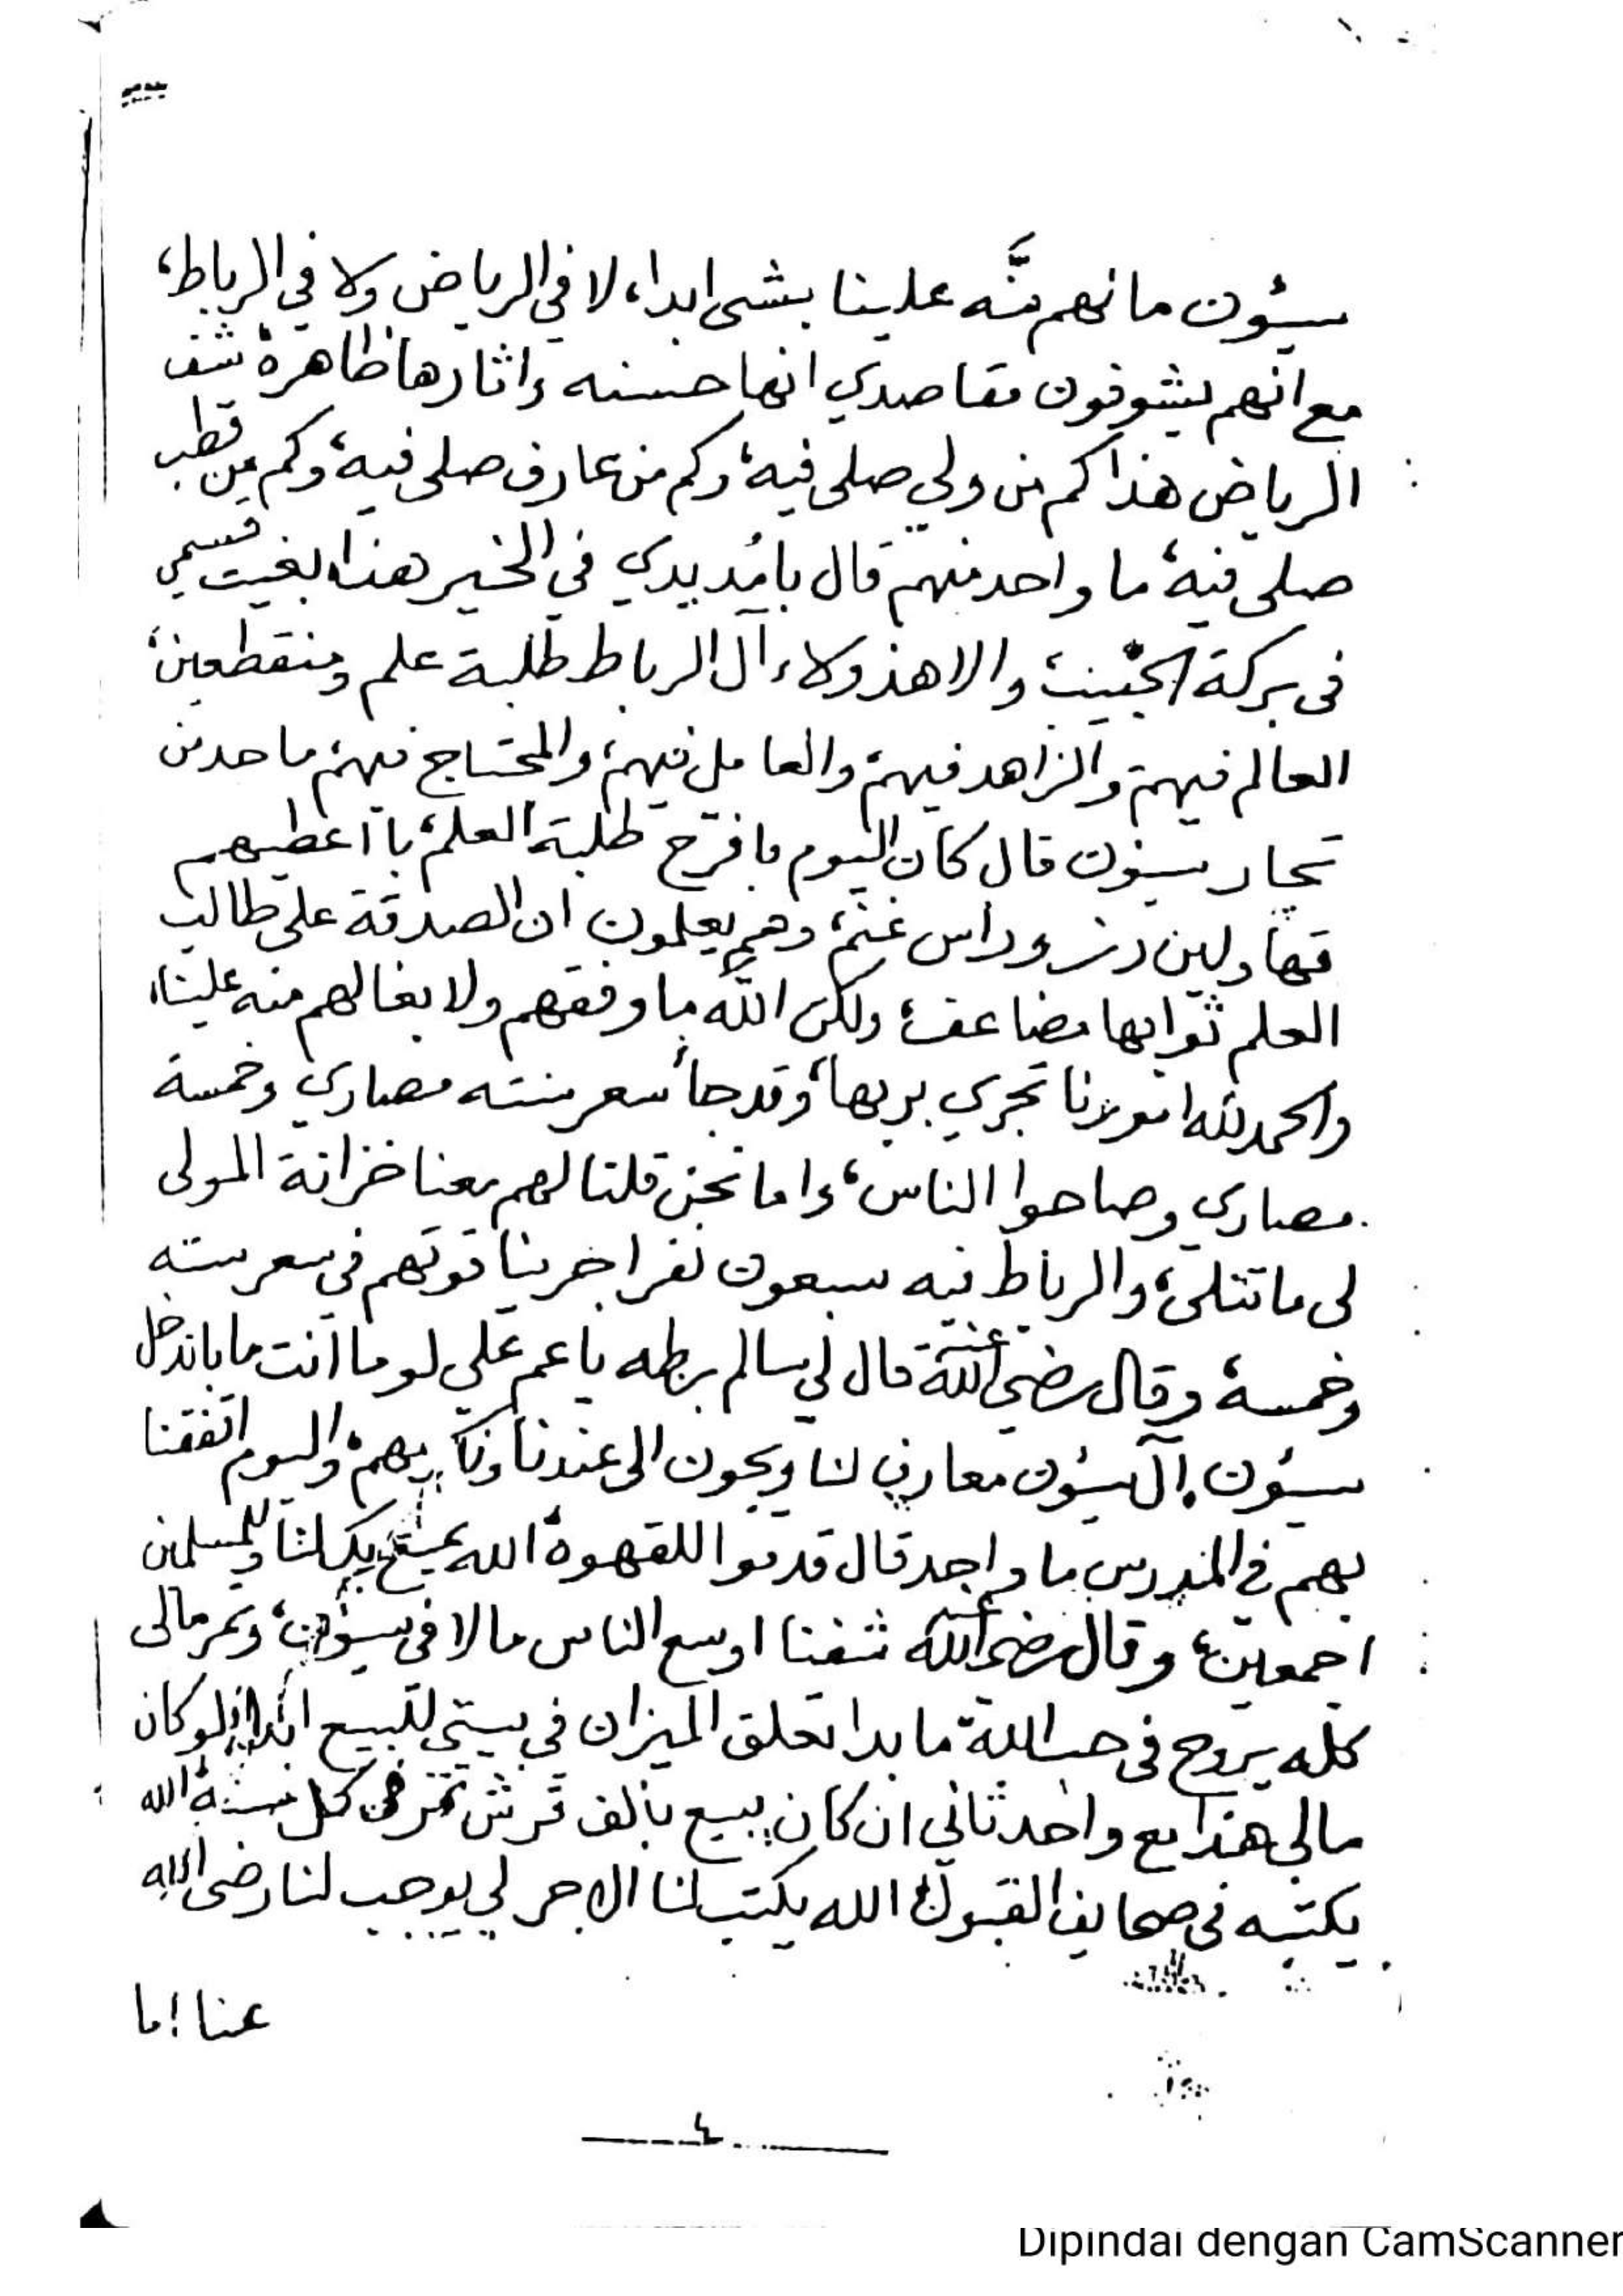 سيؤن ما لهم منَّه علينا بشى ابدا، لا في الرياض ولا في الرباط،
مع انهم يشوفون مقاصدي انها حسنه واثارها ظاهرة شف
الرياض هذا كم من ولي صلى فيه، وكم من عارف صلى فيه، وكم من قطب
صلى فيه، ما واحد منهم قال بامد يدي في الخير هذا بغيت قسمي
فى بركة الحبيب، والا هذولاء آل الرباط طلبة علم ومنقطعين،
العالم فيهم، والزاهد فيهم، والعامل فيهم، والمحتاج فيهم، ما حد من
تجار سيؤن قال كان اليوم بافرح طلبة العلم، با اعطيهم
ولين رز وراس غنم، وهم يعلمون ان الصدقة على طالب
العلم ثوابها مضاعف، ولكن الله ما وفقهم ولا بغا لهم منه علينا،
والحمد لله امورنا تجري بربها، وقد جا سعر سته مصاري وخمسة
مصاري وصاحوا الناس، واما نحن قلنا لهم معنا خزانة المولى
لى ما تتلى، والرباط فيه سبعون نفر اخرينا قوتهم في سعر سته
وخمسة، وقال رضي الله عنه قال لي سالم بطه يا عم علي لو ما انت ما باندخل
سيؤن، آل سيؤن معارف لنا ويجون الى عندنا ونا بهم، واليوم اتفقنا
بهم في ما واحد قال قدموا للقهوة الله يمتع بك لنا وللمسلمين
اجمعين، وقال رضي الله عنه شفنا اوسع الناس مالا في سيؤن، وتمر مالى
كله يروح في حب الله ما بدا تعلق الميزان في بيتي للبيع ابدا، لو كان
مالي هذا مع واحد ثاني ان كان يبيع بألف قرش تمر في كل سنة، الله
يكتبه في صحايف القبول، الله يكتب لنا الاجر لي يوجب لنا رضى الله
عنا اما
٤
Dipindai dengan CamScanner